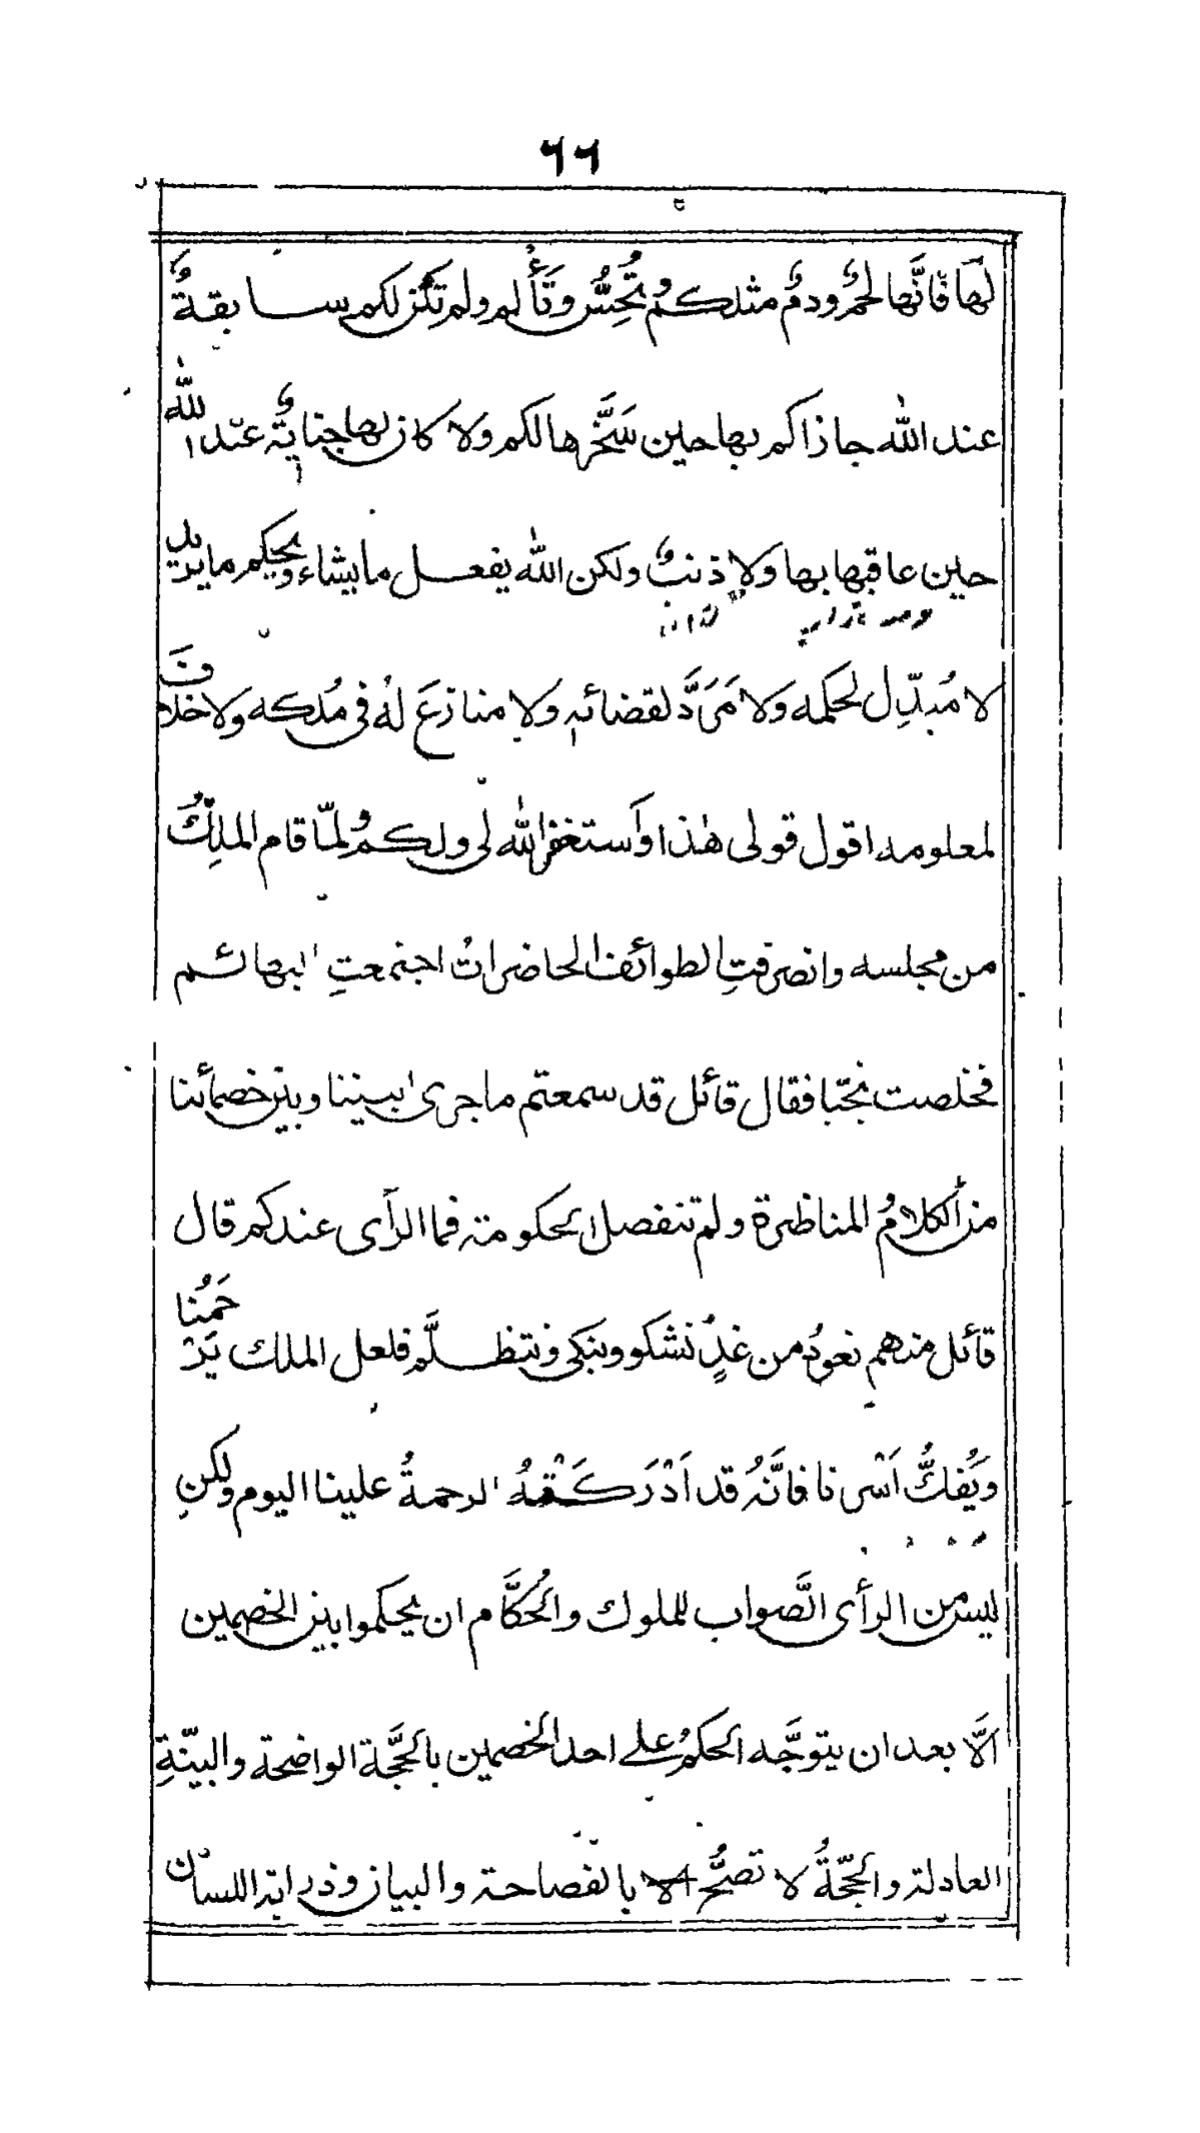 ٦٦
لَها فانَّها لحمٌ ودمٌ مثلكمُ وتُحِسُّ وتَأْلم ولم تكن لكم سابقةٌ
عند الله جازاكم بها حين سَخَّرها لكم ولا كان لها جنايةٌ عند الله
حين عاقبها بها ولا ذنبٌ ولكن الله يفعل ما يشاء ويحكم ما يريد
لا مُبدِّل لحكمه ولا مَرَدَّ لقضائه ولا منازعَ لهُ فى مُلكه ولا خلافَ
لمعلومه اقول قولى هٰذا وأستغفر الله لى ولكمُ ولمّا قام الملِكُ
من مجلسه وانصرفتِ الطوائف الحاضراتُ اجتمعتِ البهائم
فخلصت نجيّا فقال قائل قد سمعتم ما جرى بيننا وبين خصمائنا
من الكلامُ المناظرة ولم تنفصل الحكومة فما الرأى عندكم قال
قائل منهم نعودُ من غدٍ نشكو ونبكى ونتظلَّم فلعل الملك يَرْحَمُنا
ويُفكُّ اَسْرنا فانَّهُ قد اَدْرَكَتْهُ الرحمةُ علينا اليوم ولكنِ
ليس من الرأى الصَّواب للملوك والحُكَّام ان يحكموا بين الخصمين
الَّا بعد ان يتوجَّه الحكمُ على احد الخصمين بالحجَّة الواضحة والبيّنةِ
العادلة والحجّةُ لا تصحُّ الا بالفصاحة والبيان وذرابة اللسان